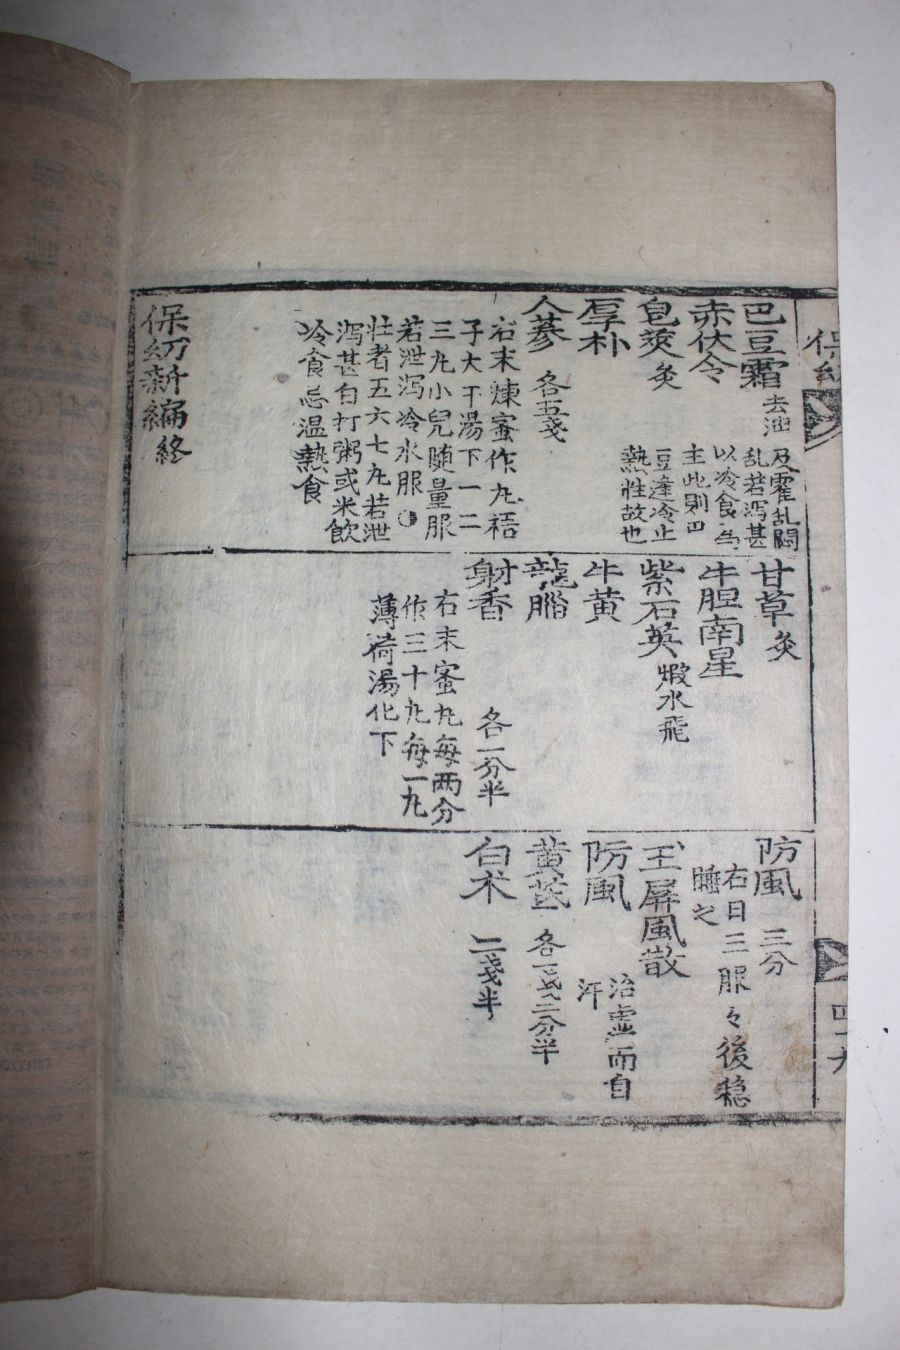 保幼
四十九
巴豆霜 去油
赤伏令
皂莢 灸
厚朴
人蔘 各五戔
及霍乱悶
乱若泻甚
以冷食為
主此則巴
豆逢冷止
熱性故也
右末煉蜜作丸梧
子大下湯下一二
三丸小兒随量服
若泄泻冷水服
壮者五六七丸若泄
泻甚白打粥或米飲
冷食忌温熱食
保幼新編終
甘草 灸
牛胆南星
紫石英 煆水飛
牛黄
龍腦
射香 各一分半
右末蜜丸每两分
作三十丸每一丸
薄荷湯化下
防風 三分
右日三服々後稳
睡之
玉屏風散
治虚而自
汗
防風
黄茋 各一戔二分半
白术 二戔半